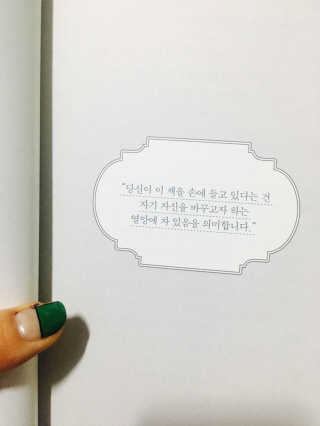 "당신이 이 책을 손에 들고 있다는 건
자기 자신을 바꾸고자 하는
열망에 차 있음을 의미합니다."